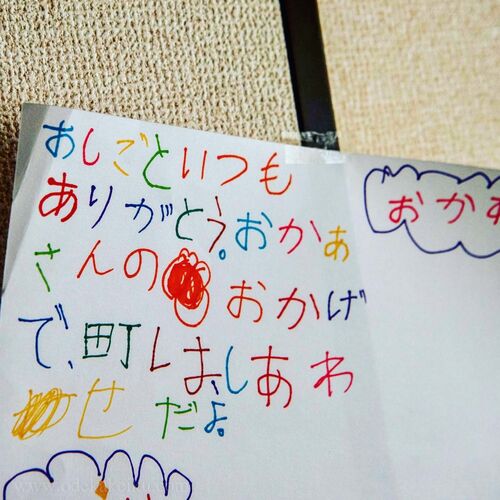 おしごといつも
ありがとう。おかあ
さんの おかげ
で、町しは、しあわ
せだよ。
おかあ